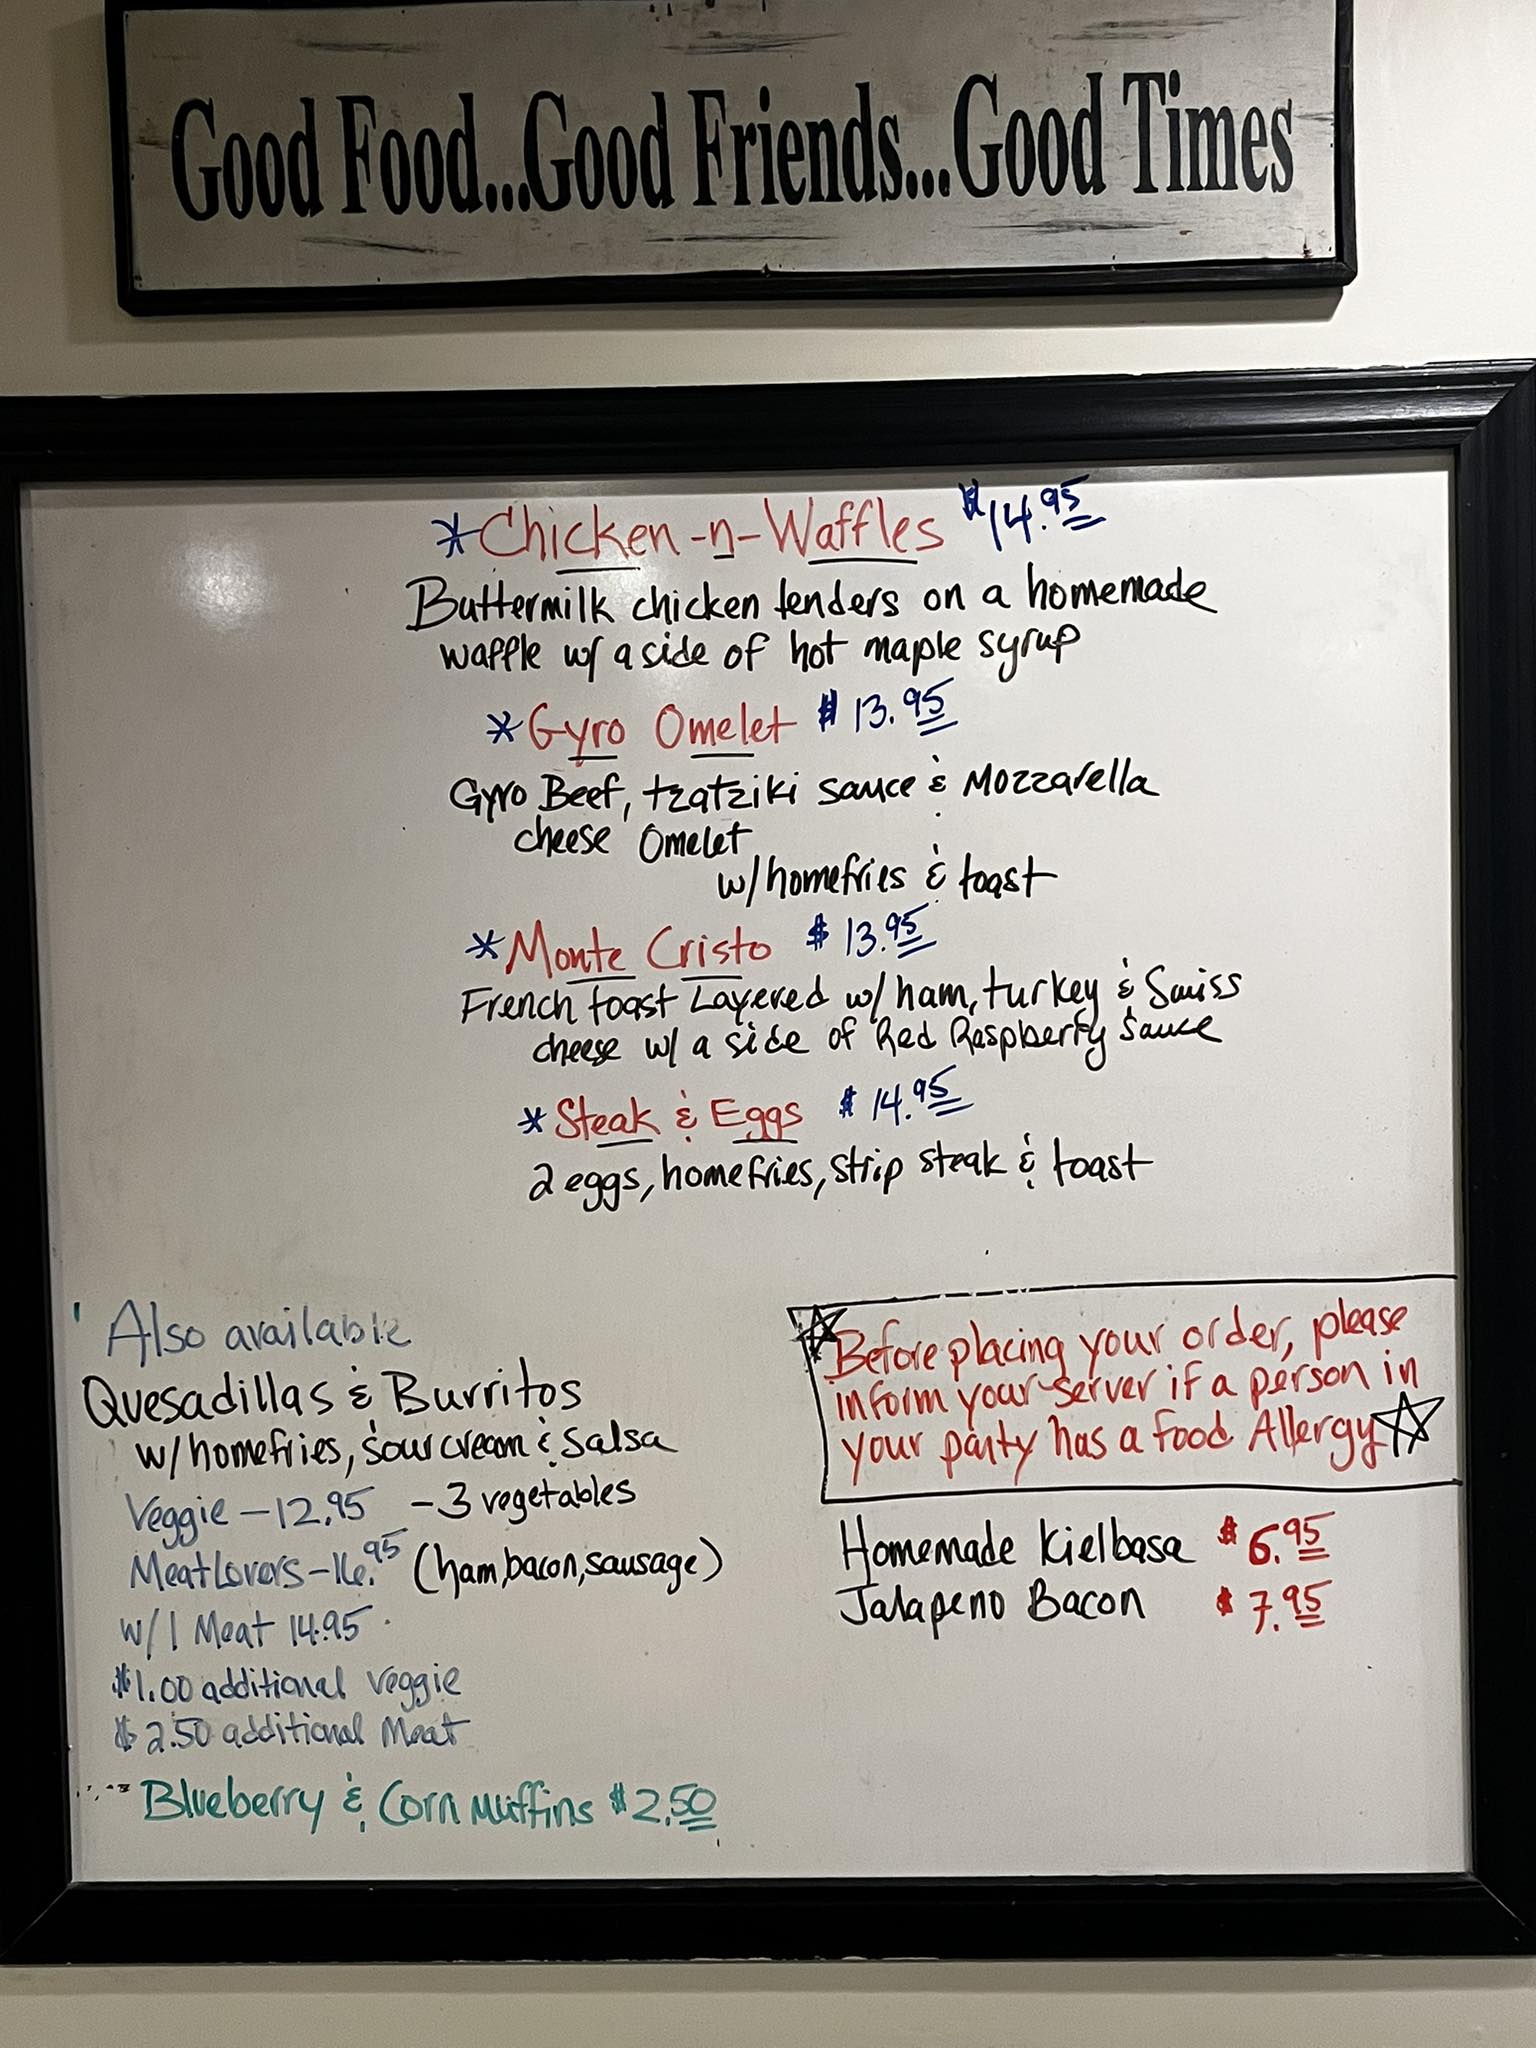 Good Food...Good Friends...Good Times
*Chicken-n-Waffles $14.95
Buttermilk chicken tenders on a homemade
waffle w/ a side of hot maple syrup
*Gyro Omelet $13.95
Gyro Beef, tzatziki sauce & Mozzarella
cheese Omelet
w/homefries & toast
*Monte Cristo $13.95
French toast Layered w/ ham, turkey & Swiss
cheese w/ a side of Red Raspberry Sauce
*Steak & Eggs $14.95
2 eggs, homefries, strip steak & toast
Also available
Quesadillas & Burritos
w/homefries, sour cream & salsa
Veggie - 12.95 - 3 vegetables
Meat Lovers - 16.95 (ham, bacon, sausage)
w/1 Meat 14.95
$1.00 additional veggie
$2.50 additional Meat
Blueberry & Corn Muffins $2.50
Before placing your order, please
inform your server if a person in
your party has a food Allergy
Homemade Kielbasa $6.95
Jalapeno Bacon $7.95